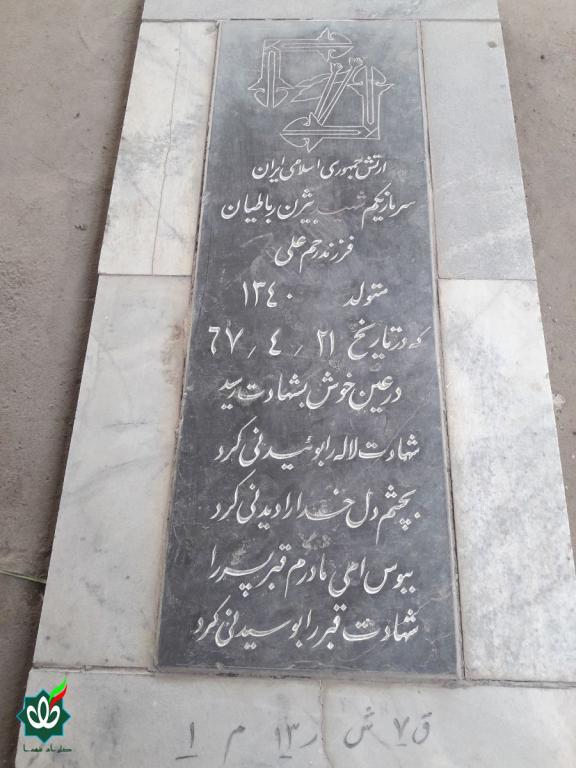 ارتش جمهوری اسلامی ایران
سرباز یکم شهید بیژن رباطیان
فرزند رحم علی
متولد ۱۳۴۰
که در تاریخ ۲۱ / ۴ / ۶۷
در عین خوش بشهادت رسید
شهادت لاله را بوئیدنی کرد
بچشم دل خدا را دیدنی کرد
ببوس ای مادرم قبر پسر را
شهادت قبر را بوسیدنی کرد
ق ۷ ش ر ۱۳ م ۱